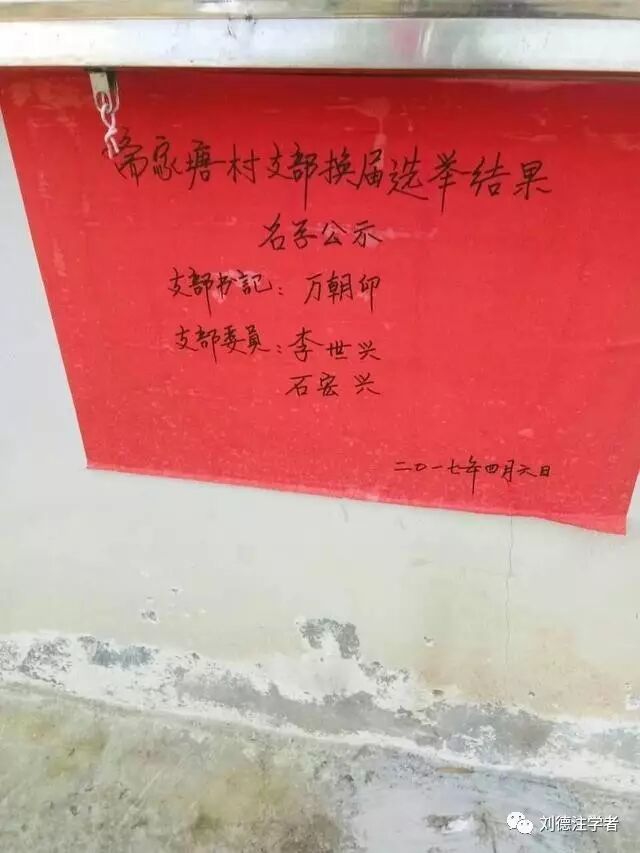 家塘村支部换届选举结果
名字公示
支部书記：万朝仰
支部委員：李世兴
石宏兴
二〇一七年四月六日
刘德注学者